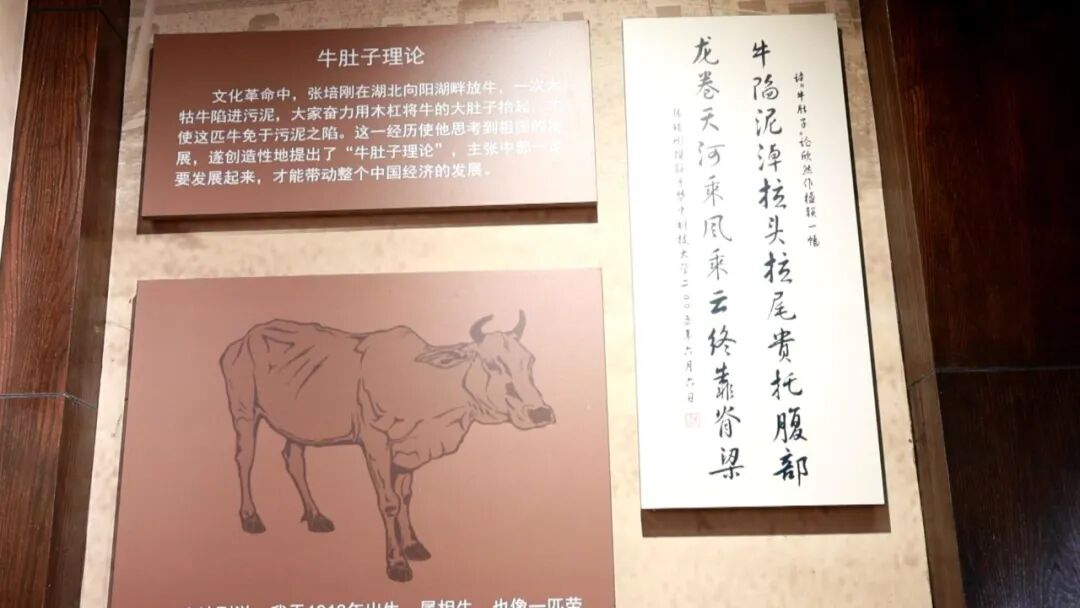 牛肚子理论
文化革命中，张培刚在湖北向阳湖畔放牛，一次大
牯牛陷进污泥，大家奋力用木杠将牛的大肚子抬起，
使这匹牛免于污泥之陷。这一经历使他思考到祖国的发
展，遂创造性地提出了“牛肚子理论”，主张中部一定
要发展起来，才能带动整个中国经济的发展。
读“牛肚子”论欣然作楹联一幅
牛陷泥淖拉头拉尾贵托腹部
龙卷天河乘风乘云终靠脊梁
于华中科技大学二00五年六月六日
年出生，属相牛，也像一匹劳